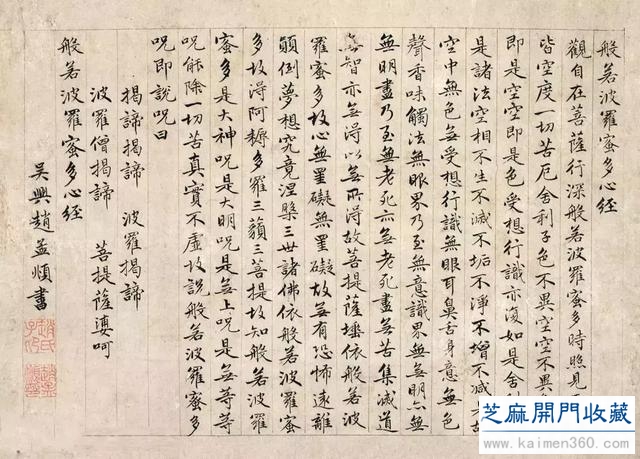 般若波羅蜜多心經
觀自在菩薩行深般若波羅蜜多時照見
皆空度一切苦厄舍利子色不異空空不異
即是空空即是色受想行識亦復如是舍
是諸法空相不生不滅不垢不淨不增不減是故
空中無色無受想行識無眼耳鼻舌身意無色
聲香味觸法無眼界乃至無意識界無無明亦無
無明盡乃至無老死亦無老死盡無苦集滅道
無智亦無得以無所得故菩提薩埵依般若波
羅蜜多故心無罣礙無罣礙故無有恐怖遠離
顛倒夢想究竟涅槃三世諸佛依般若波羅蜜
多故得阿耨多羅三藐三菩提故知般若波羅
蜜多是大神呪是大明呪是無上呪是無等等
呪能除一切苦真實不虛故說般若波羅蜜多
呪即說呪曰
揭諦揭諦 波羅揭諦
波羅僧揭諦 菩提薩婆呵
般若波羅蜜多心經
吳興趙孟頫書
趙氏子昂
芝麻開門收藏
www.kaimen360.com